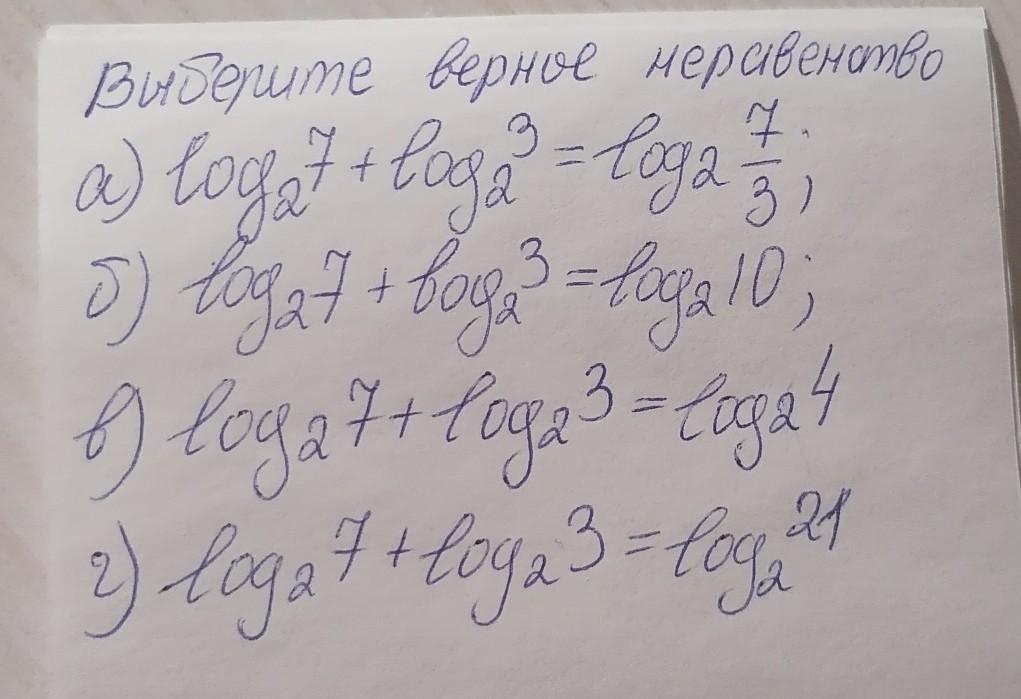 Выберите верное неравенство
а) log₂7 + log₂3 = log₂ 7/3;
б) log₂7 + log₂3 = log₂10;
в) log₂7 + log₂3 = log₂4
г) log₂7 + log₂3 = log₂21